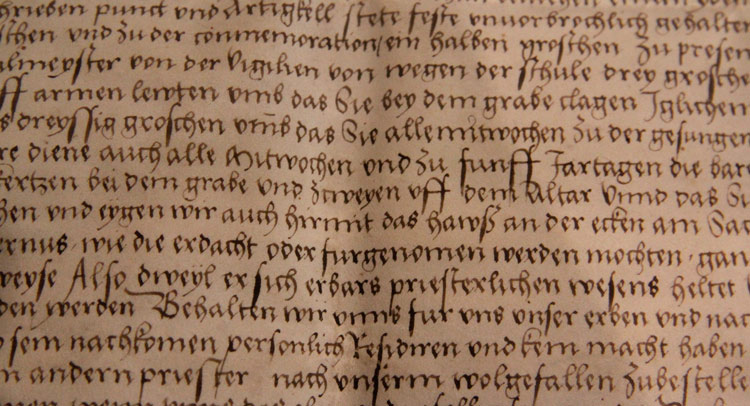 hrieben punct und Artigkell stete feste unvorbrochlich gehalten
schen und zu der commemoration ein halben groschen zu presen
almeyster von der Vigilien von wegen der schule drey grosche
ff armen lewten umb das Sie bey dem grabe clagen Iglichen
s dreyssig groschen umb das Sie alle mitwochen zu der gesungen
re diene auch alle Mitwochen und zu funff Jartagen die bare
kertzen bei dem grabe und zweyen uff dem Altar Unnd das Si
hen und eygen wir auch hirmit das hawß an der ecken am Sac
ernus wie die erdacht oder furgenomen werden mochten gan
weyse Also dweyl er sich erbars priesterlichen wesens heltet
den werden Behalten wir unns fur uns unser erben und nac
sein nachkomen personlich Residiren und kein macht haben
n andern priester nach unserm wolgefallen zubestelle